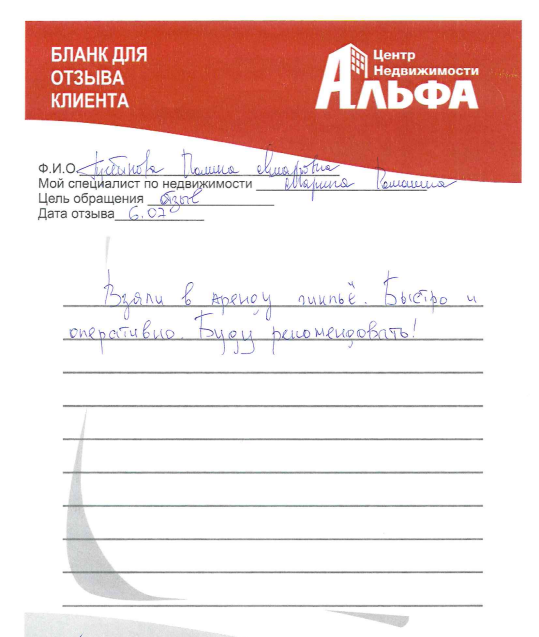 БЛАНК ДЛЯ
ОТЗЫВА
КЛИЕНТА
Центр
Недвижимости
АЛЬФА
Ф.И.О.
Мой специалист по недвижимости Марина
Цель обращения отзыв
Дата отзыва 6.07
Взяли в аренду жильё. Быстро и
оперативно. Буду рекомендовать!